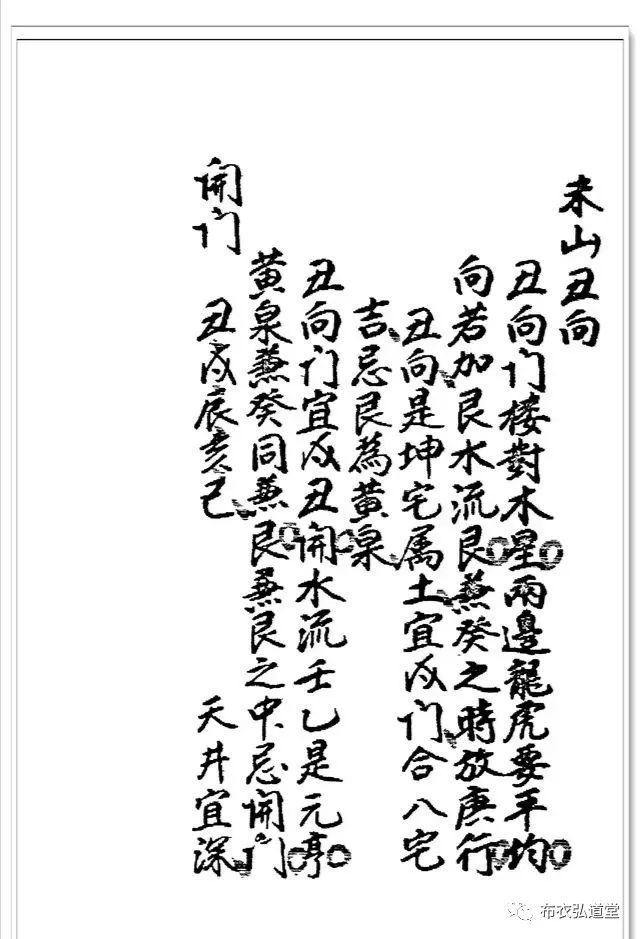 未山丑向
丑向门楼對木星兩邊龍虎要平均
向若加艮水流艮兼癸之時放庚行
丑向是坤宅属土宜戌门合八宅
吉忌艮為黄泉
丑向门宜戌丑開水流壬乙是元亨
黄泉兼癸同兼艮兼艮之中忌開门
開门 丑戌辰亥己 天井宜深
布衣弘道堂